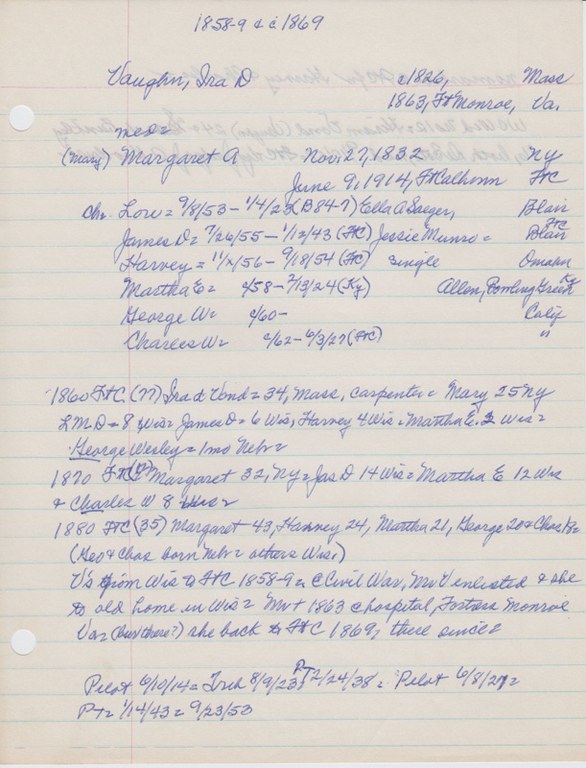 1858-9 & c 1869
Vaughn, Ira D c1826, Mass
1863, Ft Monroe, Va.
med=
(Mary) Margaret A Nov, 27, 1832 NY
June 9, 1914, Ft Calhoun FtC
Ch. Low= 9/8/53- 1/4/23 (B84-7) Ella A Saeger, Blair
James D= 7/26/55- 1/12/43 (FtC) Jessie Munro= Blair FtC
Harvey= 11/x/56- 9/18/54 (FtC) single Omaha
Martha E= c/58- 2/13/24 (Ky) Allen, Bowling Green Ky
George W= c/60- Calif
Charles W= c/62- 6/3/27 (FtC) "
1860 FtC. (77) Ira d Vond= 34, Mass, carpenter= Mary 25 NY
L.M.D= 8 Wis= James D= 6 Wis, Harvey 4 Wis= Martha E. 2 Wis=
George Wesley= 1mo Nebr=
1870 FtC Margaret 32, NY= Jas D 14 Wis= Martha E 12 Wis
& Charles W 8 Wis=
1880 FtC (35) Margaret 43, Harvey 24, Martha 21, George 20 & Chas 18=
(Geo & Chas born Nebr= others Wis.)
V's from Wis to FtC 1858-9= c Civil War, Mr V enlisted & she
to old home in Wis= Mr + 1863 c hospital, Fortress Monroe
Va= (bur there?) she back to FtC 1869, there since=
Pilot 6/10/14= Trib 8/9/23, PT 2/24/38= Pilot 6/8/27=
PT= 1/14/43= 9/23/53